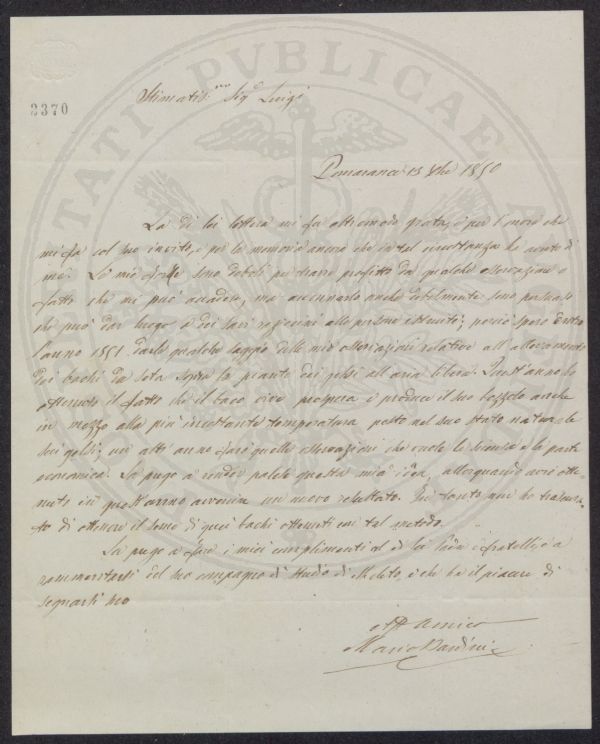 2370
Stimatis.mo Sig.r Luigi
Pomarance 13 1850
La di lei lettera mi fa oltremodo grata, e per l'onore che
mi fa col suo invito, e per la memoria ancora che in tal circostanza ha avuto di
me. Le mie forze sono deboli per trarre profitto da qualche osservazione o
fatto che mi può accadere, ma accennarlo anche debolmente sono persuaso
che può dar luogo a dei savi raziocini alle persone; perciò spero entro
l'anno 1851 darle qualche saggio delle mie osservazioni relative all'allevamento
dei bachi da seta sopra le piante dei gelsi all'aria libera. Quest'anno ho
ottenuto il fatto che il baco vive prospera e produce il suo bozzolo anche
in mezzo alla più incostante temperatura posto nel suo stato naturale
sui gelsi; un altr'anno farò quelle osservazioni che vuole la scienza e la parte
economica. La prego a render palese questa mia idea, allorquando avrò otte-
nuto in quest'anno un nuovo resultato. Per tanto non ho trascura-
to di ottenere il seme di quei bachi ottenuti in tal metodo.
La prego a fare i miei complimenti al di lei fratelli, e a
rammentarsi del suo compagno di studio di Meleto, e che ha il piacere di
segnarsi suo
Aff. Amico
Mario Bardini